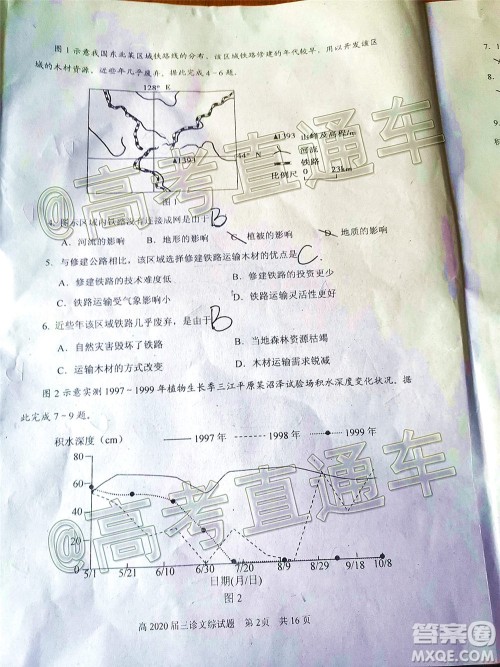 图 1 示意我国东北某区域铁路线的分布，该区域铁路修建的年代较早，用以开发该区
域的木材资源，近些年几乎废弃。据此完成 4－6 题。
128° E
44° N
▲1393
▲1393 山峰及高程/m
河流
铁路
比例尺 0 23km
图 1
4. 图示区域内铁路没有连接成网是由于 B
A. 河流的影响 B. 地形的影响 C. 植被的影响 D. 地质的影响
5. 与修建公路相比，该区域选择修建铁路运输木材的优点是 C.
A. 修建铁路的技术难度低 B. 修建铁路的投资更少
C. 铁路运输受气象影响小 D. 铁路运输灵活性更好
6. 近些年该区域铁路几乎废弃，是由于 B
A. 自然灾害毁坏了铁路 B. 当地森林资源枯竭
C. 运输木材的方式改变 D. 木材运输需求锐减
图 2 示意实测 1997－1999 年植物生长季三江平原某沼泽试验场积水深度变化状况。据
此完成 7－9 题。
积水深度（cm） 1997 年 1998 年 1999 年
80
60
40
20
0
5/1 5/21 6/10 6/30 7/20 8/9 8/29 9/18 10/8
日期(月/日)
图 2
高 2020 届三诊文综试题 第 2页 共 16 页
@高考直通车
@高考直通车
7.
8.
答案圈
MXQE.COM